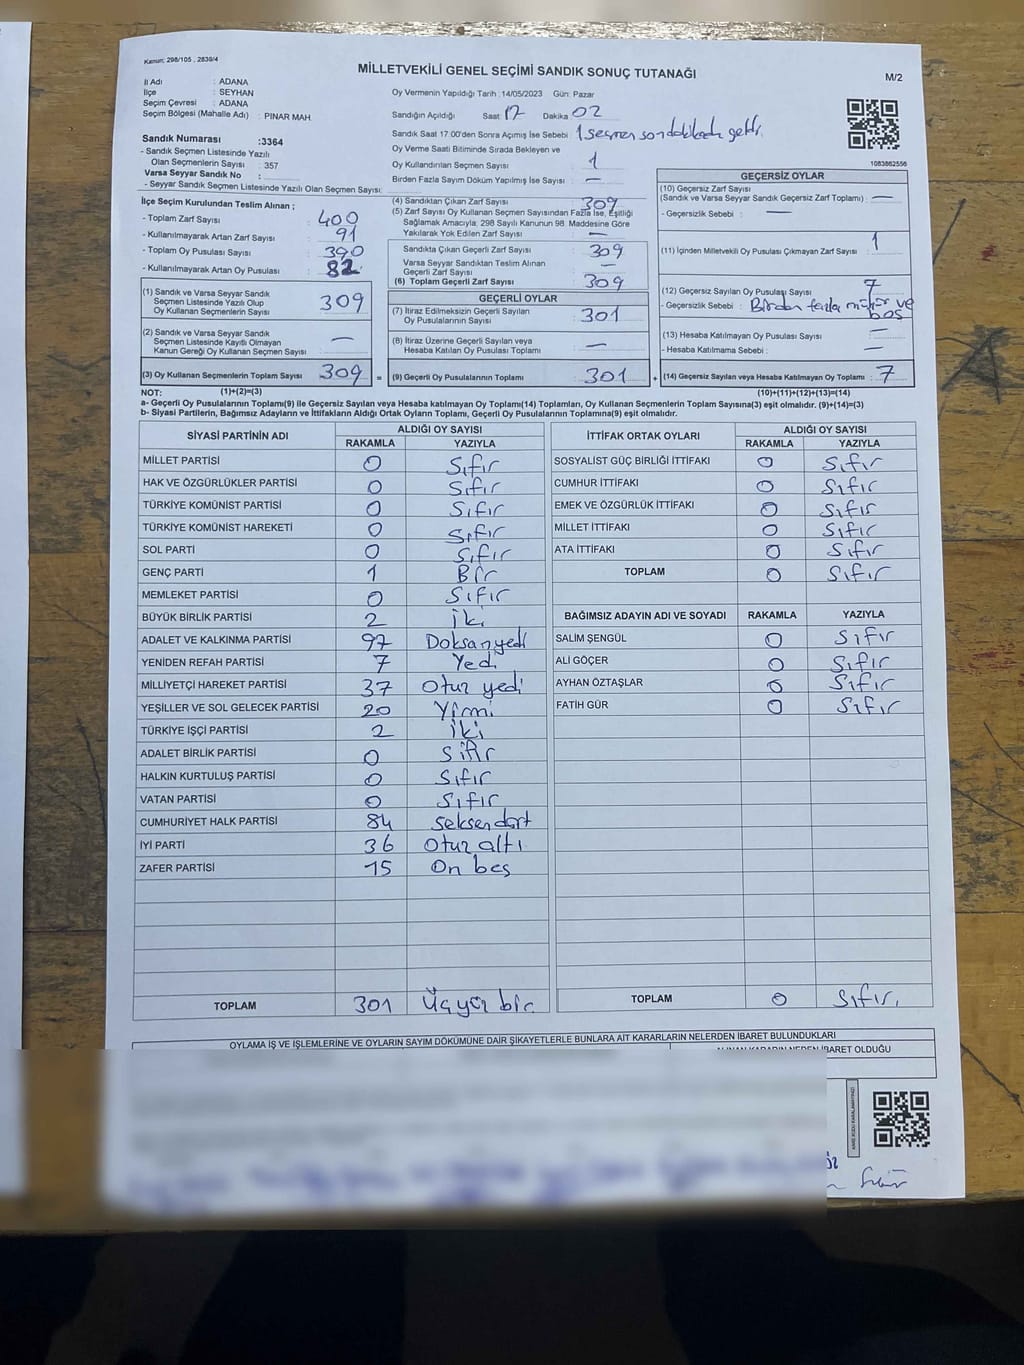 Kanun; 298/105 , 2839/4
MİLLETVEKİLİ GENEL SEÇİMİ SANDIK SONUÇ TUTANAĞI
M/2
İl Adı : ADANA
İlçe : SEYHAN
Seçim Çevresi : ADANA
Seçim Bölgesi (Mahalle Adı) : PINAR MAH.
Oy Vermenin Yapıldığı Tarih :14/05/2023 Gün: Pazar
Sandığın Açıldığı Saat: 17 Dakika 02
Sandık Saat 17.00'den Sonra Açımış İse Sebebi : 1 seçmen son dakikada geldi.
Oy Verme Saati Bitiminde Sırada Bekleyen ve
Oy Kullandırılan Seçmen Sayısı : 1
Birden Fazla Sayım Döküm Yapılmış İse Sayısı : —
1083862556
Sandık Numarası :3364
- Sandık Seçmen Listesinde Yazılı
Olan Seçmenlerin Sayısı : 357
Varsa Seyyar Sandık No :
- Seyyar Sandık Seçmen Listesinde Yazılı Olan Seçmen Sayısı:
İlçe Seçim Kurulundan Teslim Alınan ;
- Toplam Zarf Sayısı : 400
- Kullanılmayarak Artan Zarf Sayısı : 91
- Toplam Oy Pusulası Sayısı : 390
- Kullanılmayarak Artan Oy Pusulası : 82
(1) Sandık ve Varsa Seyyar Sandık
Seçmen Listesinde Yazılı Olup
Oy Kullanan Seçmenlerin Sayısı : 309
(2) Sandık ve Varsa Seyyar Sandık
Seçmen Listesinde Kayıtlı Olmayan
Kanun Gereği Oy Kullanan Seçmen Sayısı : —
(3) Oy Kullanan Seçmenlerin Toplam Sayısı : 309 =
(4) Sandıktan Çıkan Zarf Sayısı : 309
(5) Zarf Sayısı Oy Kullanan Seçmen Sayısından Fazla İse, Eşitliği
Sağlamak Amacıyla; 298 Sayılı Kanunun 98. Maddesine Göre
Yakılarak Yok Edilen Zarf Sayısı : —
Sandıkta Çıkan Geçerli Zarf Sayısı : 309
Varsa Seyyar Sandıktan Teslim Alınan
Geçerli Zarf Sayısı : —
(6) Toplam Geçerli Zarf Sayısı : 309
GEÇERLİ OYLAR
(7) İtiraz Edilmeksizin Geçerli Sayılan
Oy Pusulalarının Sayısı : 301
(8) İtiraz Üzerine Geçerli Sayılan veya
Hesaba Katılan Oy Pusulası Toplamı : —
(9) Geçerli Oy Pusulalarının Toplamı : 301 +
GEÇERSİZ OYLAR
(10) Geçersiz Zarf Sayısı
(Sandık ve Varsa Seyyar Sandık Geçersiz Zarf Toplamı) : —
- Geçersizlik Sebebi : —
(11) İçinden Milletvekili Oy Pusulası Çıkmayan Zarf Sayısı : 1
(12) Geçersiz Sayılan Oy Pusulası Sayısı : 7
- Geçersizlik Sebebi : Birden fazla mühür ve
boş
(13) Hesaba Katılmayan Oy Pusulası Sayısı : —
- Hesaba Katılmama Sebebi : —
(14) Geçersiz Sayılan veya Hesaba Katılmayan Oy Toplamı : 7
NOT: (1)+(2)=(3) (10)+(11)+(12)+(13)=(14)
a- Geçerli Oy Pusulalarının Toplamı(9) ile Geçersiz Sayılan veya Hesaba katılmayan Oy Toplamı(14) Toplamları, Oy Kullanan Seçmenlerin Toplam Sayısına(3) eşit olmalıdır. (9)+(14)=(3)
b- Siyasi Partilerin, Bağımsız Adayların ve İttifakların Aldığı Ortak Oyların Toplamı, Geçerli Oy Pusulalarının Toplamına(9) eşit olmalıdır.
SİYASİ PARTİNİN ADI ALDIĞI OY SAYISI
RAKAMLA YAZIYLA
MİLLET PARTİSİ 0 Sıfır
HAK VE ÖZGÜRLÜKLER PARTİSİ 0 Sıfır
TÜRKİYE KOMÜNİST PARTİSİ 0 Sıfır
TÜRKİYE KOMÜNİST HAREKETİ 0 Sıfır
SOL PARTİ 0 Sıfır
GENÇ PARTİ 1 Bir
MEMLEKET PARTİSİ 0 Sıfır
BÜYÜK BİRLİK PARTİSİ 2 iki
ADALET VE KALKINMA PARTİSİ 97 Doksanyedi
YENİDEN REFAH PARTİSİ 7 Yedi
MİLLİYETÇİ HAREKET PARTİSİ 37 Otuz yedi
YEŞİLLER VE SOL GELECEK PARTİSİ 20 Yirmi
TÜRKİYE İŞÇİ PARTİSİ 2 iki
ADALET BİRLİK PARTİSİ 0 Sıfır
HALKIN KURTULUŞ PARTİSİ 0 Sıfır
VATAN PARTİSİ 0 Sıfır
CUMHURİYET HALK PARTİSİ 84 Seksendört
İYİ PARTİ 36 Otuz altı
ZAFER PARTİSİ 15 On beş
TOPLAM 301 Üçyüz bir
İTTİFAK ORTAK OYLARI ALDIĞI OY SAYISI
RAKAMLA YAZIYLA
SOSYALİST GÜÇ BİRLİĞİ İTTİFAKI 0 Sıfır
CUMHUR İTTİFAKI 0 Sıfır
EMEK VE ÖZGÜRLÜK İTTİFAKI 0 Sıfır
MİLLET İTTİFAKI 0 Sıfır
ATA İTTİFAKI 0 Sıfır
TOPLAM 0 Sıfır
BAĞIMSIZ ADAYIN ADI VE SOYADI RAKAMLA YAZIYLA
SALİM ŞENGÜL 0 Sıfır
ALİ GÖÇER 0 Sıfır
AYHAN ÖZTAŞLAR 0 Sıfır
FATİH GÜR 0 Sıfır
TOPLAM 0 Sıfır.
OYLAMA İŞ VE İŞLEMLERİNE VE OYLARIN SAYIM DÖKÜMÜNE DAİR ŞİKAYETLERLE BUNLARA AİT KARARLARIN NELERDEN İBARET BULUNDUKLARI
İBARET OLDUĞU